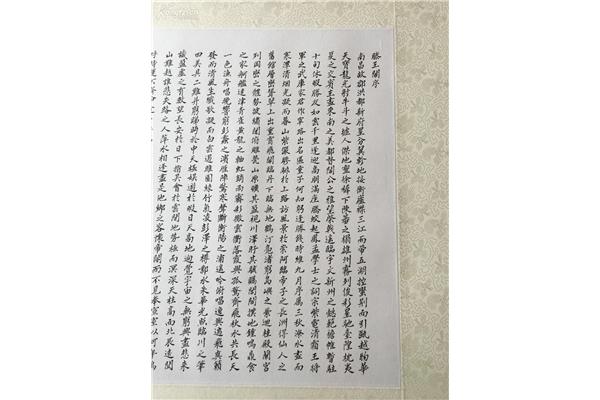 滕王閣序
南昌故郡洪都新府星分翼軫地接衡廬襟三江而帶五湖控蠻荊而引甌越物華
天寶龍光射牛斗之墟人傑地靈徐孺下陳蕃之榻雄州霧列俊彩星馳臺隍枕夷
夏之交賓主盡東南之美都督閻公之雅望棨戟遙臨宇文新州之懿範襜帷暫駐
十旬休暇勝友如雲千里逢迎高朋滿座騰蛟起鳳孟學士之詞宗紫電清霜王將
軍之武庫家君作宰路出名區童子何知躬逢勝餞時維九月序屬三秋潦水盡而
寒潭清煙光凝而暮山紫儼驂騑於上路訪風景於崇阿臨帝子之長洲得仙人之
舊館層巒聳翠上出重霄飛閣臨丹下臨無地鶴汀鳧渚窮島嶼之縈迴桂殿蘭宮
列岡巒之體勢披繡闥俯雕甍山原曠其盈視川澤盱其駭矚閭閻撲地鐘鳴鼎食
之家舸艦迷津青雀黃龍之舳虹銷雨霽彩徹雲衢落霞與孤鶩齊飛秋水共長天
一色漁舟唱晚響窮彭蠡之濱雁陣驚寒聲斷衡陽之浦遙吟俯暢逸興遄飛爽籟
發而清風生纖歌凝而白雲遏睢園綠竹氣凌彭澤之樽鄴水朱華光照臨川之筆
四美具二難并窮睇眄於中天極娛遊於暇日天高地迥覺宇宙之無窮興盡悲來
識盈虛之有數望長安於日下指吳會於雲間地勢極而南溟深天柱高而北辰遠關
山難越誰悲失路之人萍水相逢盡是他鄉之客懷帝閽而不見奉宣室以何年烏